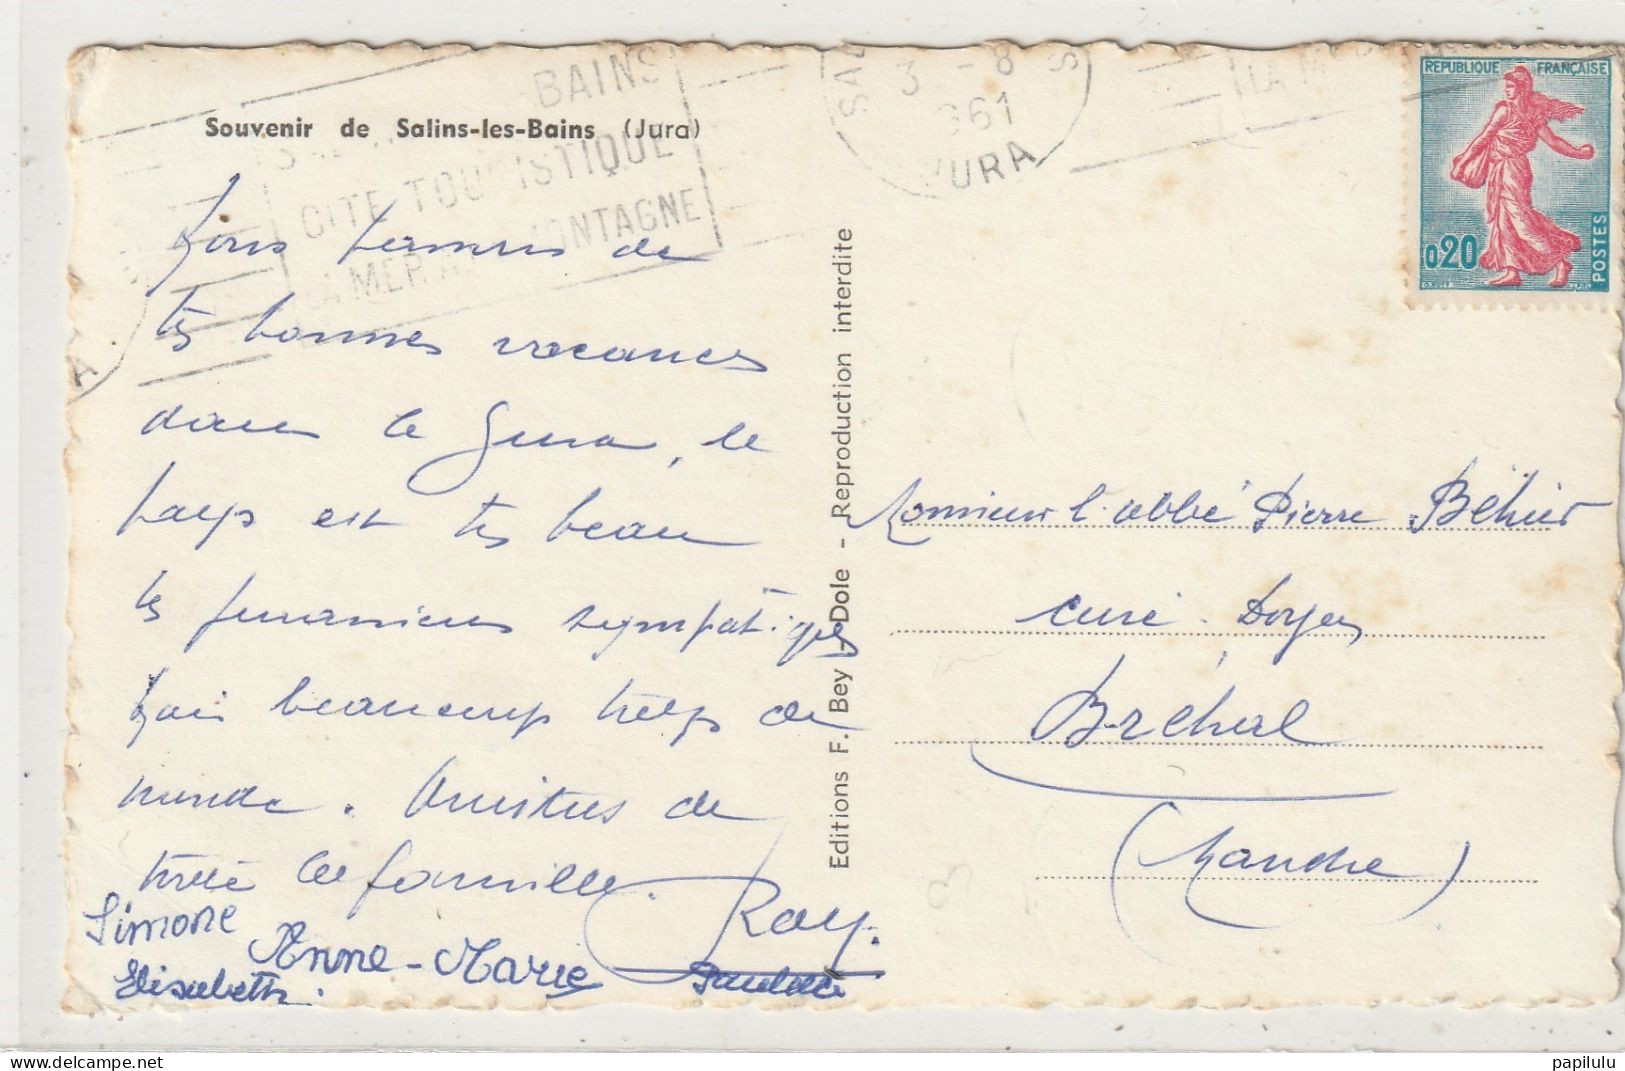 Souvenir de Salins-les-Bains (Jura)
BAINS
CITE TOURISTIQUE
LA MER MONTAGNE
SAL
3 - 8
1961
JURA
REPUBLIQUE FRANÇAISE
0,20
POSTES
Nous venons de
très bonnes vacances
dans le Jura, le
pays est très beau
les jurassiens sympatiques
mais beaucoup trop de
monde. Amitiés de
toute la famille.
Ray.
Simone
Anne-Marie
Paulette
Elisabeth.
Editions F. Bey - Dole - Reproduction interdite
Monsieur l'abbé Pierre Béhier
curé-Doyen
Bréhal
(Manche)
papilulu